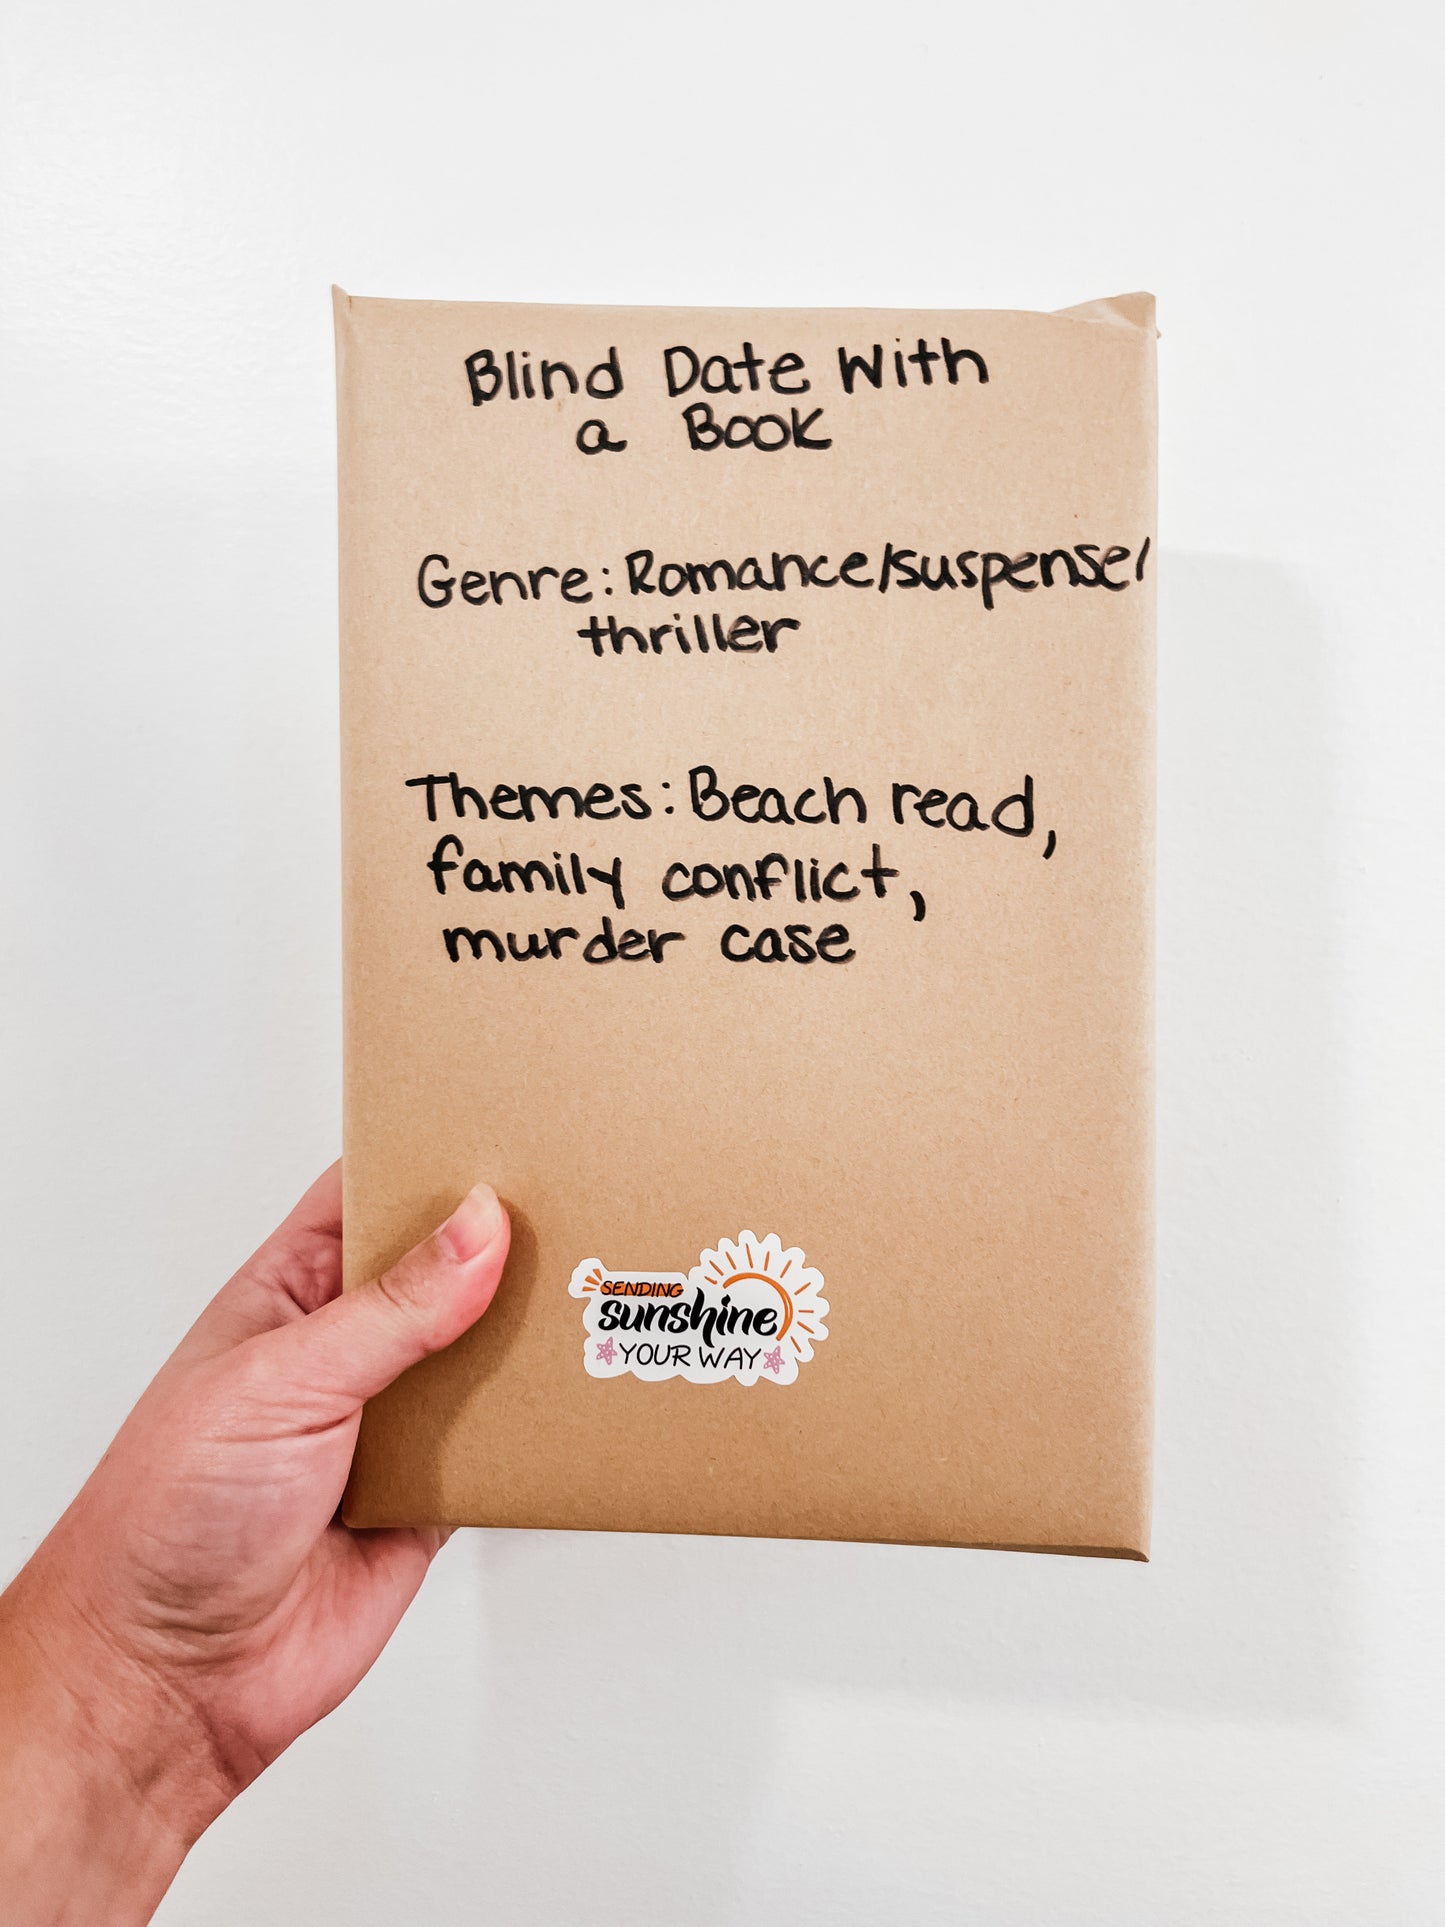 Blind Date With
a Book
Genre: Romance/suspense/
thriller
Themes: Beach read,
family conflict,
murder case
SENDING
sunshine
YOUR WAY